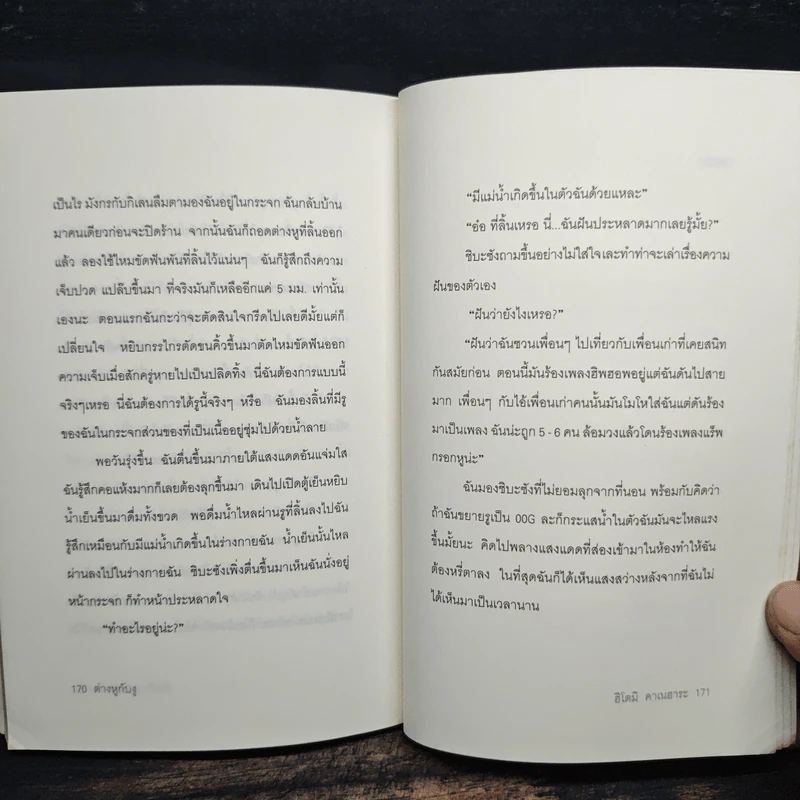 เป็นไร มังกรกับกิเลนลืมตามองฉันอยู่ในกระจก ฉันกลับบ้าน
มาคนเดียวก่อนจะปิดร้าน จากนั้นฉันก็ถอดต่างหูที่ลิ้นออก
แล้ว ลองใช้ไหมขัดฟันพันที่ลิ้นไว้แน่นๆ ฉันก็รู้สึกถึงความ
เจ็บปวด แปล๊บขึ้นมา ที่จริงมันก็เหลืออีกแค่ 5 มม. เท่านั้น
เองนะ ตอนแรกฉันกะว่าจะตัดสินใจกรีดไปเลยดีมั้ยแต่ก็
เปลี่ยนใจ หยิบกรรไกรตัดขนคิ้วขึ้นมาตัดไหมขัดฟันออก
ความเจ็บเมื่อสักครู่หายไปเป็นปลิดทิ้ง นี่ฉันต้องการแบบนี้
จริงๆเหรอ นี่ฉันต้องการได้รูนี้จริงๆ หรือ ฉันมองลิ้นที่มีรู
ของฉันในกระจกส่วนของที่เป็นเนื้ออยู่ชุ่มไปด้วยน้ำลาย
พอวันรุ่งขึ้น ฉันตื่นขึ้นมาภายใต้แสงแดดอันแจ่มใส
ฉันรู้สึกคอแห้งมากก็เลยต้องลุกขึ้นมา เดินไปเปิดตู้เย็นหยิบ
น้ำเย็นขึ้นมาดื่มทั้งขวด พอดื่มน้ำไหลผ่านรูที่ลิ้นลงไปฉัน
รู้สึกเหมือนกับมีแม่น้ำเกิดขึ้นในร่างกายฉัน น้ำเย็นนั้นไหล
ผ่านลงไปในร่างกายฉัน ชิบะซังเพิ่งตื่นขึ้นมาเห็นฉันนั่งอยู่
หน้ากระจก ก็ทำหน้าประหลาดใจ
“ทำอะไรอยู่น่ะ?”
170 ต่างหูกับงู
“มีแม่น้ำเกิดขึ้นในตัวฉันด้วยแหละ”
“อ๋อ ที่ลิ้นเหรอ นี่...ฉันฝันประหลาดมากเลยรู้มั้ย?”
ชิบะซังถามขึ้นอย่างไม่ใส่ใจเละทำท่าจะเล่าเรื่องความ
ฝันของตัวเอง
“ฝันว่ายังไงเหรอ?”
“ฝันว่าฉันชวนเพื่อนๆ ไปเที่ยวกับเพื่อนเก่าที่เคยสนิท
กันสมัยก่อน ตอนนี้มันร้องเพลงฮิพฮอพอยู่แต่ฉันดันไปสาย
มาก เพื่อนๆ กับไอ้เพื่อนเก่าคนนั้นมันโมโหใส่ฉันแต่ดันร้อง
มาเป็นเพลง ฉันน่ะถูก 5 - 6 คน ล้อมวงแล้วโดนร้องเพลงแร็พ
กรอกหูน่ะ”
ฉันมองชิบะซังที่ไม่ยอมลุกจากที่นอน พร้อมกับคิดว่า
ถ้าฉันขยายรูเป็น 00G ละก็กระแสน้ำในตัวฉันมันจะไหลแรง
ขึ้นมั้ยนะ คิดไปพลางแสงแดดที่ส่องเข้ามาในห้องทำให้ฉัน
ต้องหรี่ตาลง ในที่สุดฉันก็ได้เห็นแสงสว่างหลังจากที่ฉันไม่
ได้เห็นมาเป็นเวลานาน
ฮิโตมิ คาเนฮาระ 171